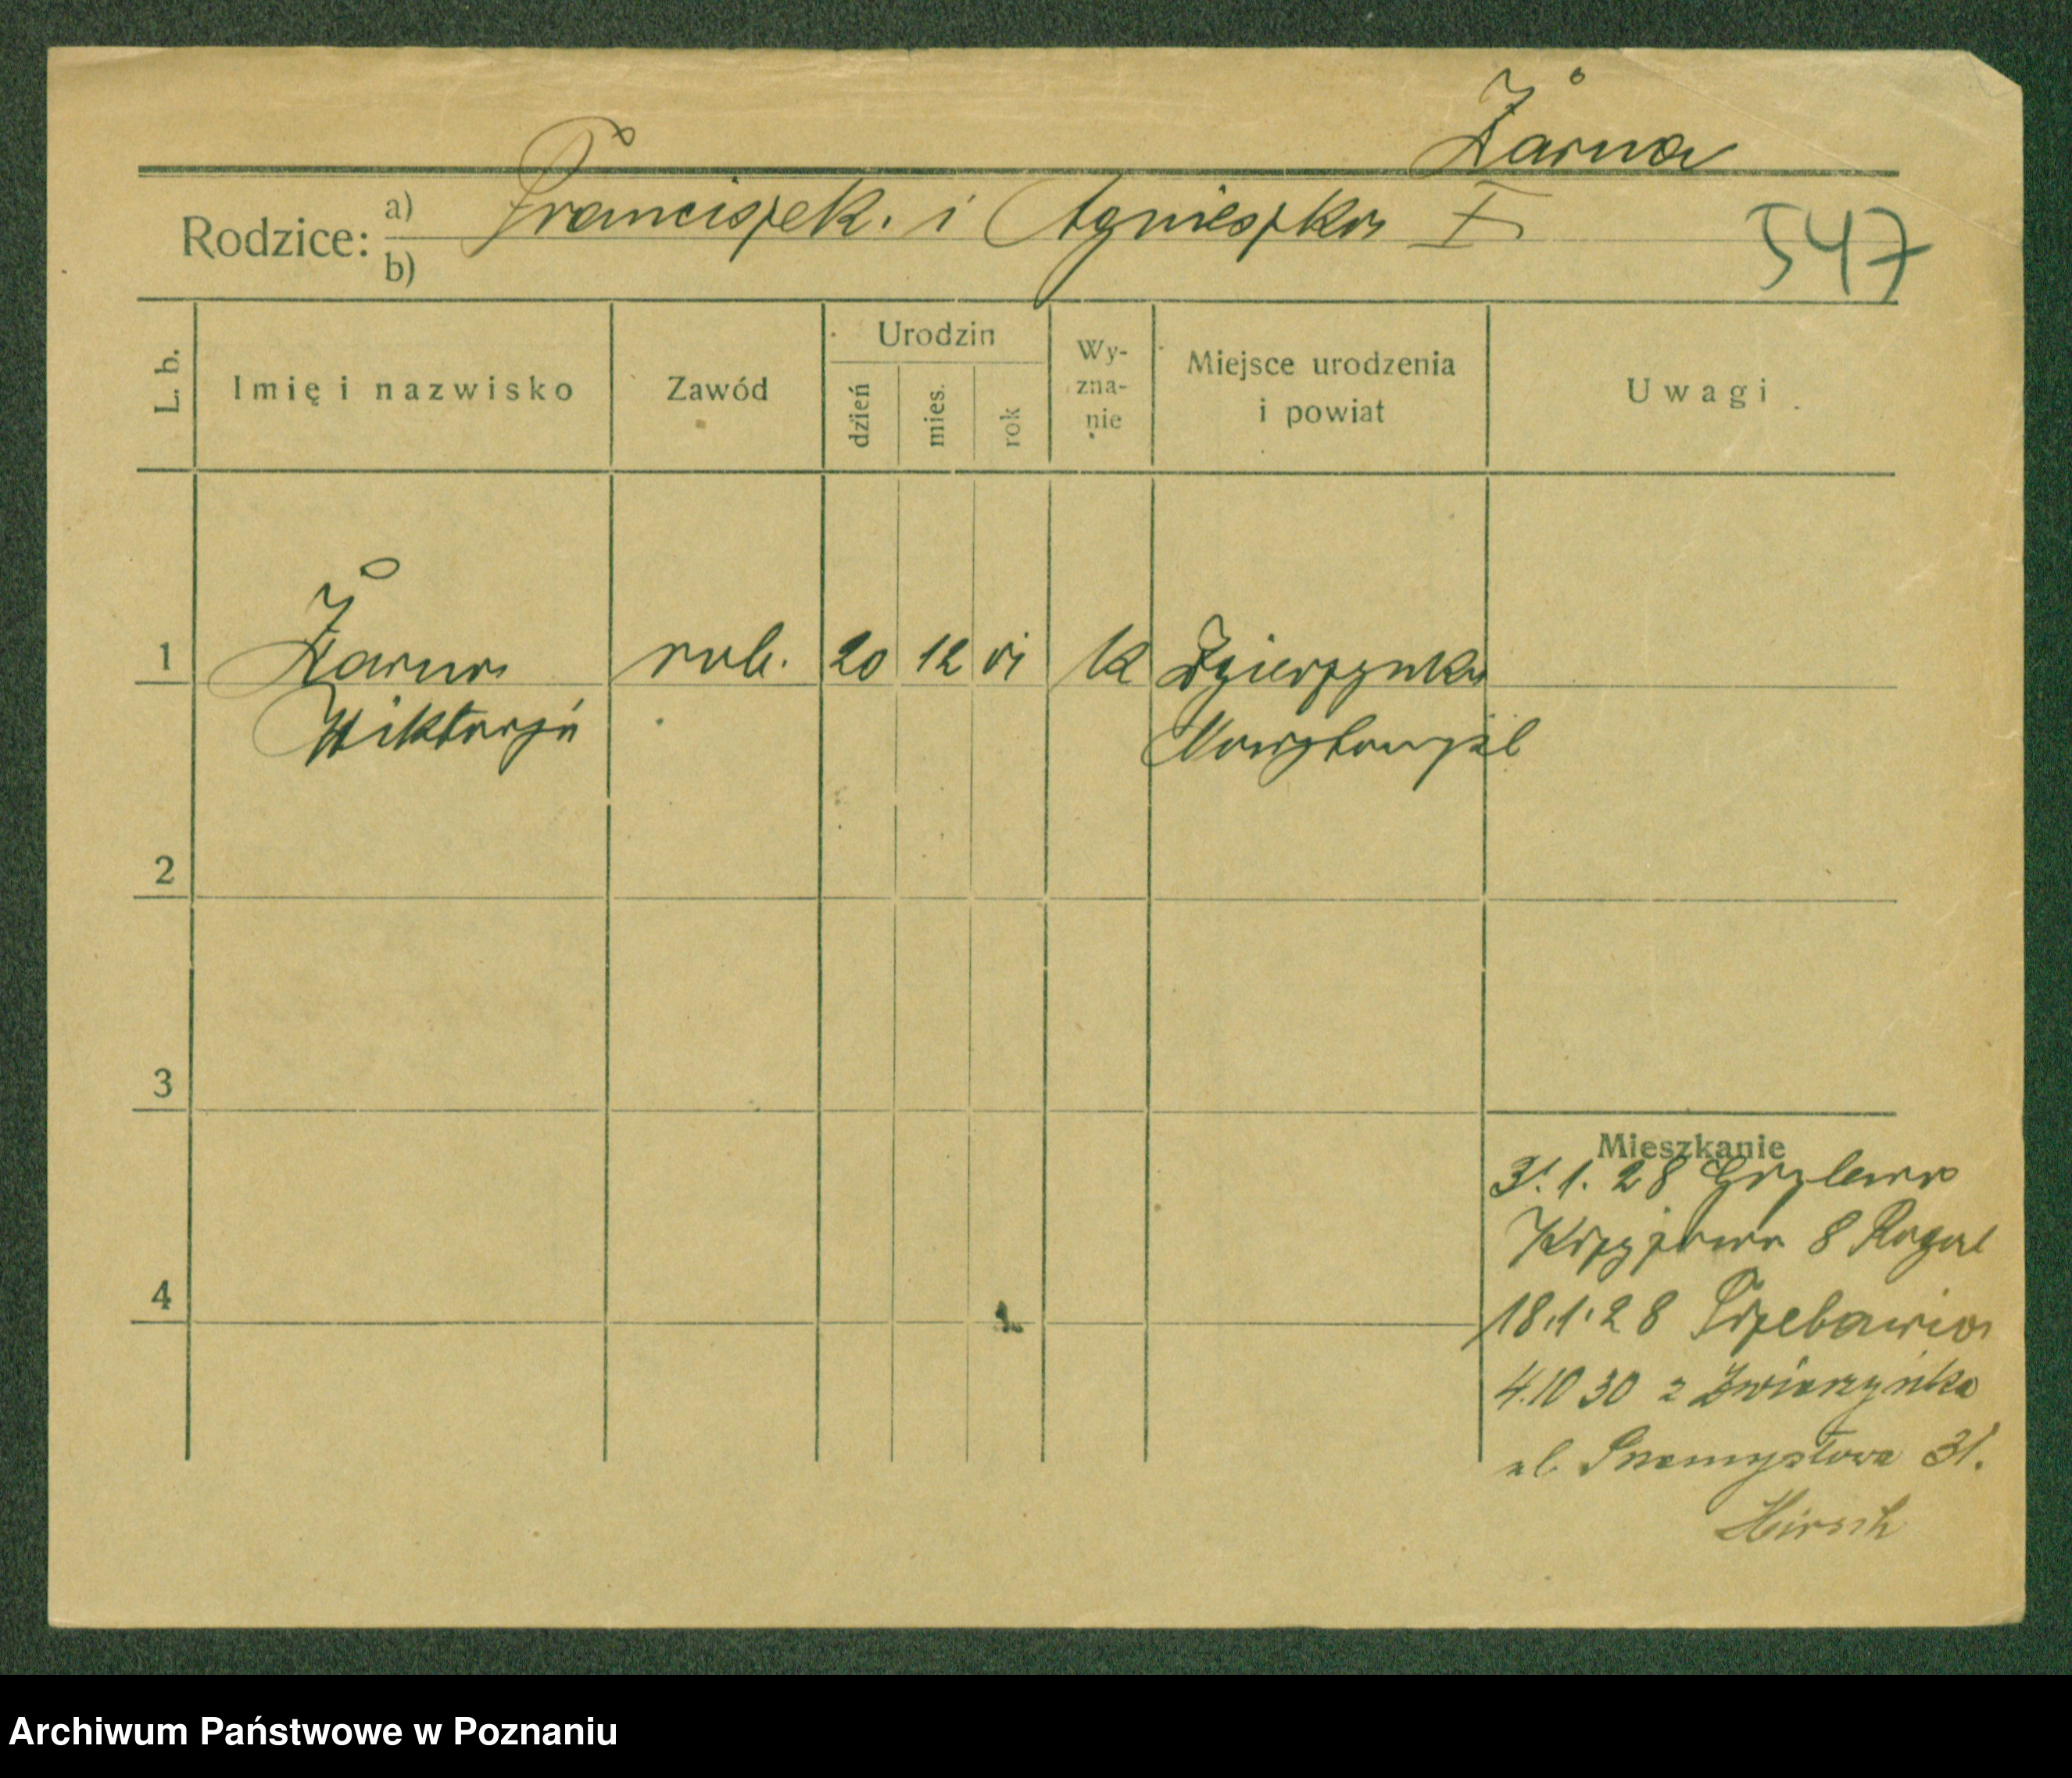 Żarna
Rodzice: a) Franciszek. i Agnieszka F
b)
547
L. b. Imię i nazwisko Zawód Urodzin dzień mies. rok Wy-zna-nie Miejsce urodzenia i powiat Uwagi
1 Żarna rob. 20 12 01 k
Wiktorja Nowytomyśl
2
3
Mieszkanie
3.1.28
Krzyżowa 8
4
18.1.28
4.10 30 z Zwierzynka
ul. Przemysłowa 31.
Hirsch
Archiwum Państwowe w Poznaniu